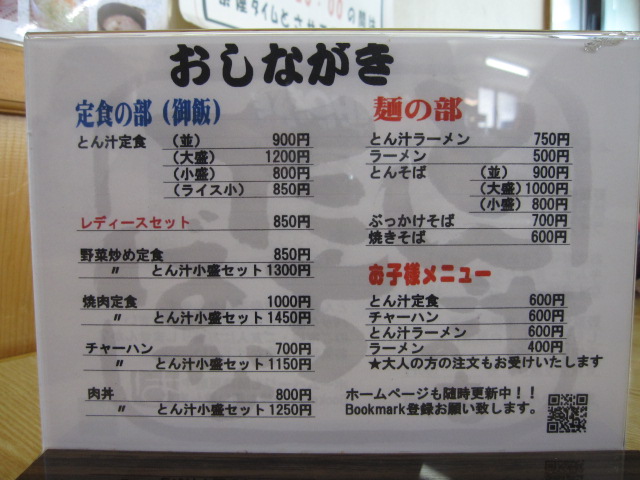 おしながき
定食の部（御飯）
とん汁定食 （並） 900円
（大盛） 1200円
（小盛） 800円
（ライス小） 850円
レディースセット 850円
野菜炒め定食 850円
〃 とん汁小盛セット 1300円
焼肉定食 1000円
〃 とん汁小盛セット 1450円
チャーハン 700円
〃 とん汁小盛セット 1150円
肉丼 800円
〃 とん汁小盛セット 1250円
麺の部
とん汁ラーメン 750円
ラーメン 500円
とんそば （並） 900円
（大盛） 1000円
（小盛） 800円
ぶっかけそば 700円
焼きそば 600円
お子様メニュー
とん汁定食 600円
チャーハン 600円
とん汁ラーメン 600円
ラーメン 400円
★大人の方の注文もお受けいたします
ホームページも随時更新中！！
Bookmark登録お願い致します。